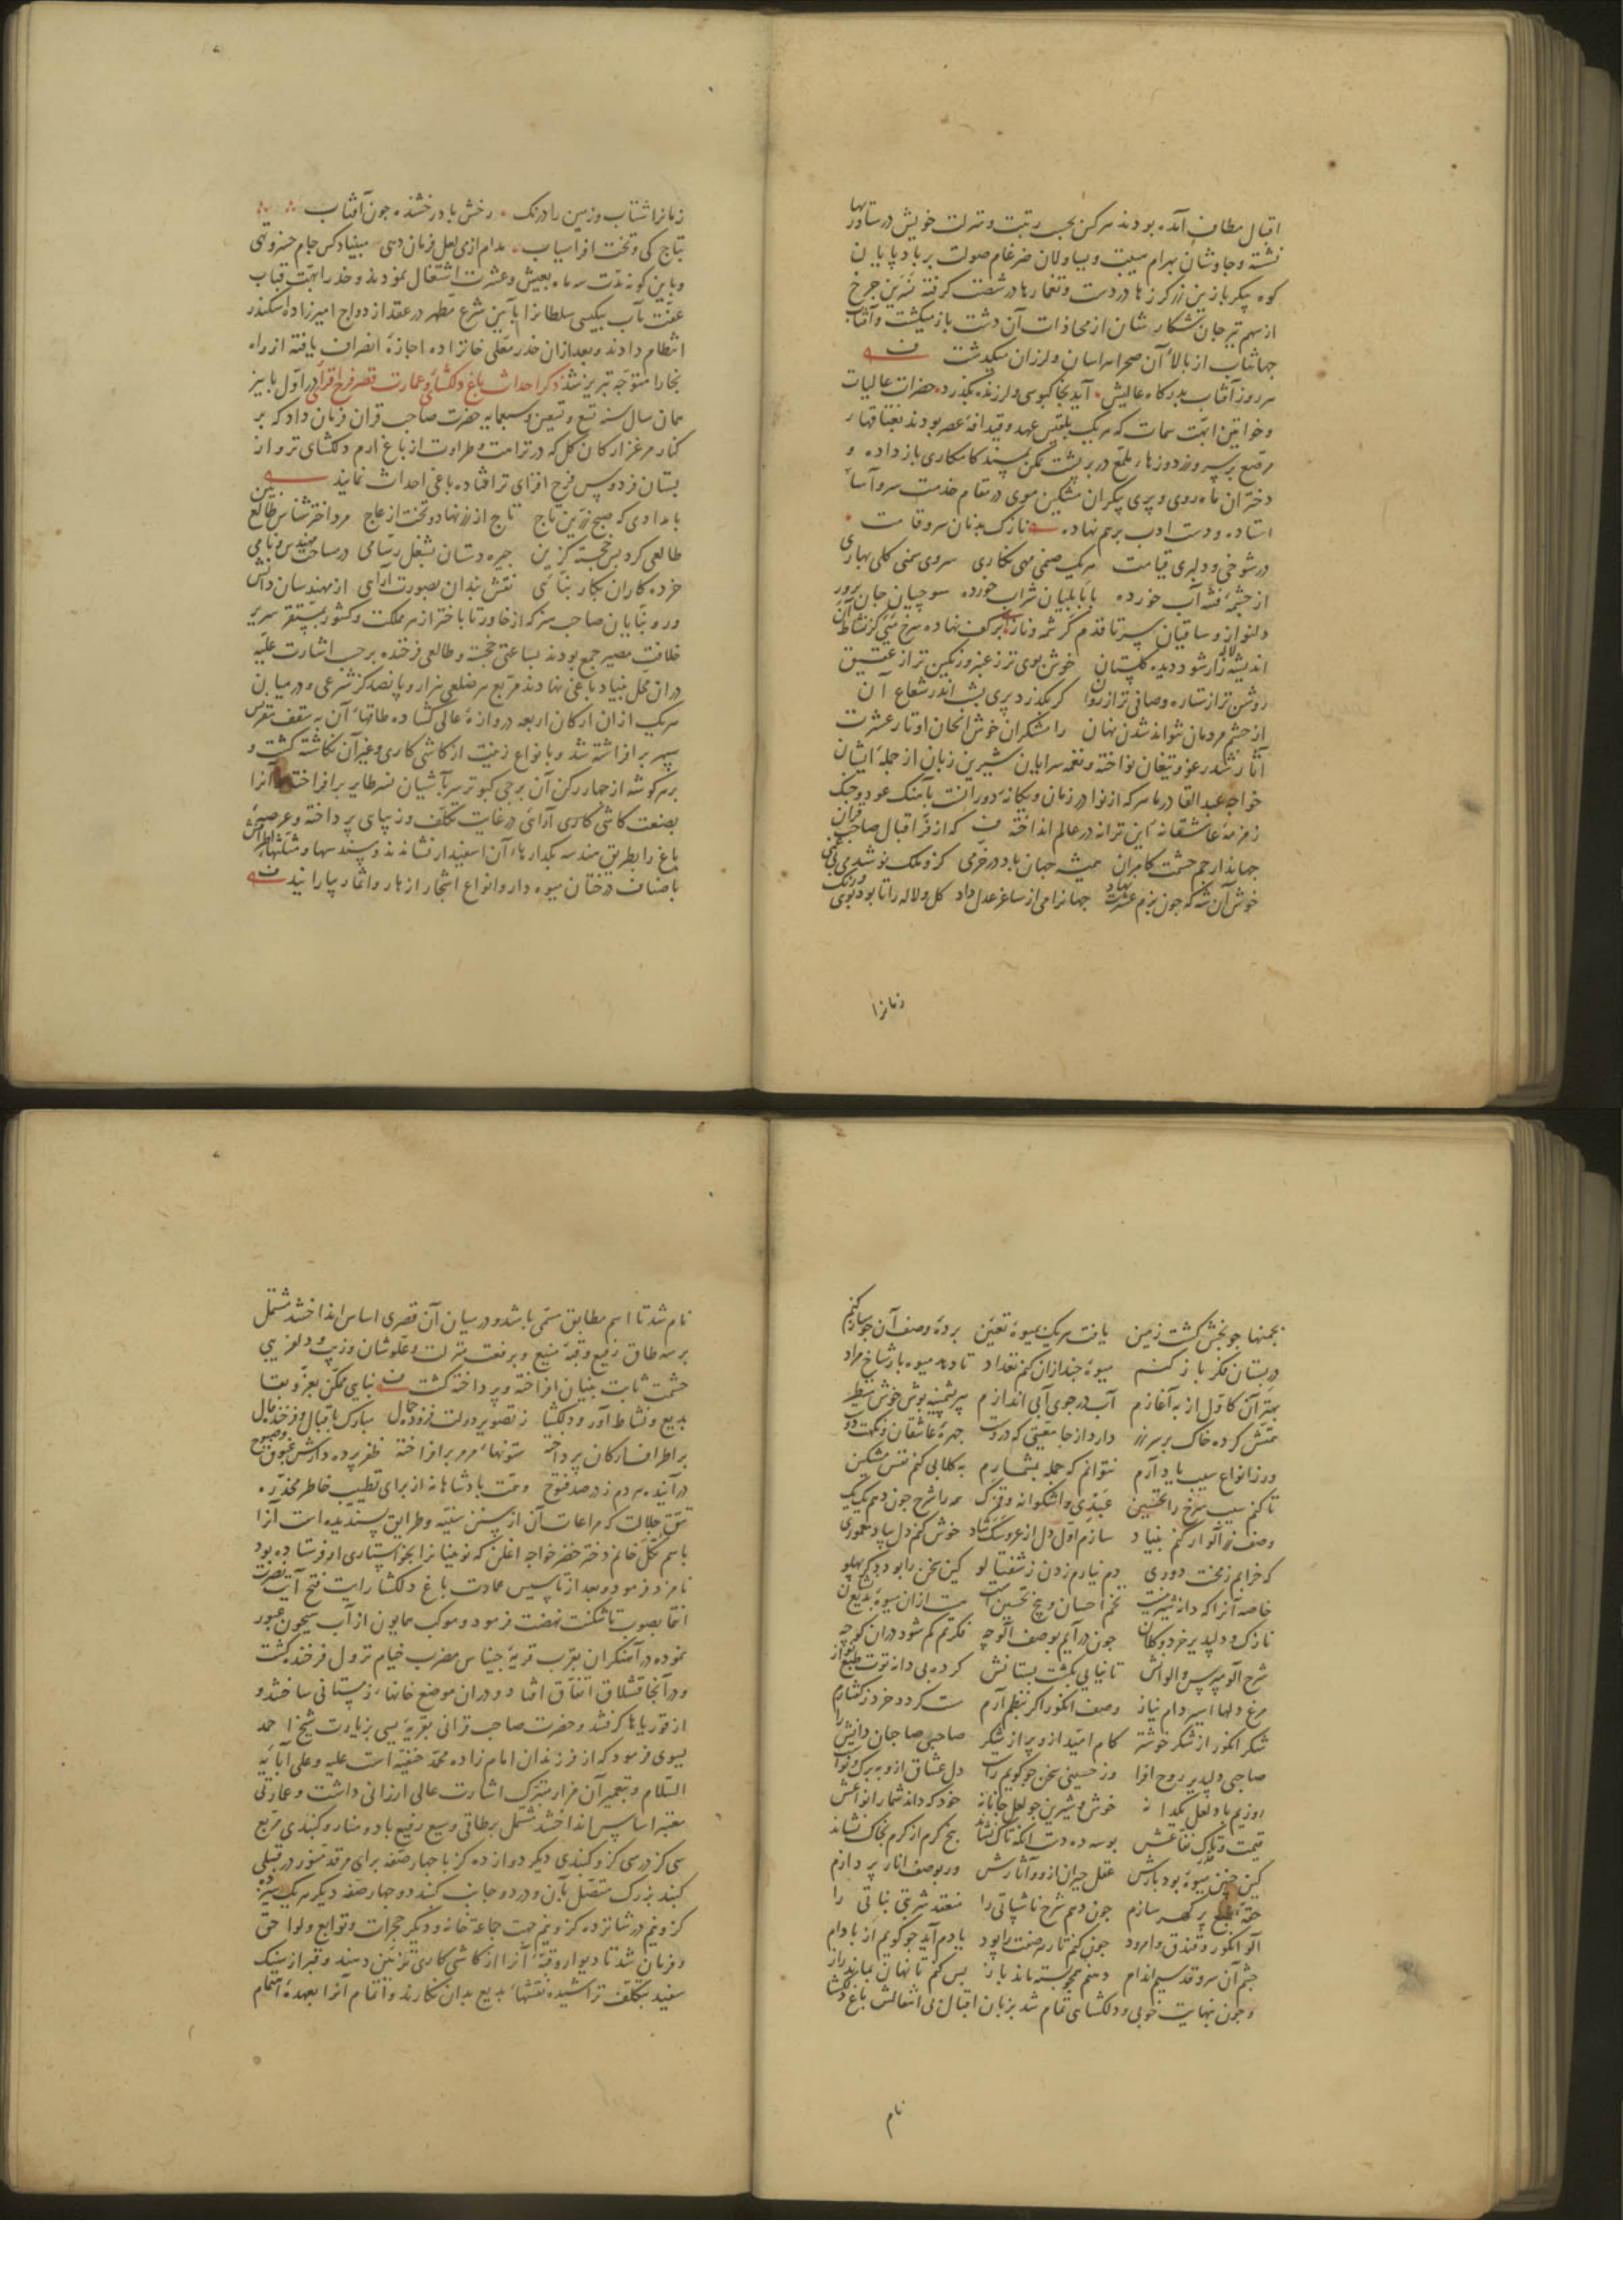 اقبال مطاف آمده بودند هر کس بحسب رتبت ومنزلت خویش درستاوربها
نشسته وجاوشان بهرام هیبت ویساولان ضرغام صولت بر باد پایان
کوه پیکر بازین زر کرزها در دست وتغمارها در شصت کرفته نسرین جرخ
از سهم تیر جان شکار شان از محاذات آن دشت باز میکشت وآفتاب
جهانتاب از بالاء آن صحرا هراسان ولرزان میکذشت
هر روز آفتاب بدرکاه عالیش آید بخاکبوسی ولرزنده بکذرد حضرات عالیات
وخواتین ابهت سمات که هر یک بلقیس عهد وقیدافهٔ عصر بودند بغتاقهای
مرصع بر سر وزردوزهاء ملمع در بر پشت تمکن بمسند کامکاری باز داده و
دختران ماه روی وپری پیکران مشکین موی در مقام خدمت سرو آسا
استاده ودست ادب برهم نهاده نازک بدنان سرو قامت
در شوخی ودلبری قیامت هر یک صنمی مهی نکاری سروی سمنی کلی بهاری
از جشمهٔ فتنه آب خورده با بابلیان شراب خورده سوجیان جان پرور
دلنواز وساقیان سر تا قدم کرشمه وناز بر کف نهاده سرخ میی کز نشاط آن
اندیشه لاله زار شود دیده کلستان خوش بوی تر ز عنبر ورنکین تر از عقیق
روشن تر از ستاره وصافی تر از روان کر بکذرد پری بشب اندر شعاع آن
از جشم مردمان نتواند شدن نهان رامشکران خوش الحان اوتار عشرت
آثار شدرغو ویتغان نواخته ونغمه سرایان شیرین زبان از جملهٔ ایشان
خواجه عبد القادر ماهر که از نوادر زمان ویکانهٔ دورانست بآهنک عود وجنک
زمزمهٔ عاشقانهٔ این ترانه در عالم انداخته که از فر اقبال صاحب قران
جهاندار جم حشمت کامران همیشه جهان باد در خرمی کزو ملک نو شد
خوش آن شه که جون بزم عشرت نهاد جهانرا می از ساغر عدل داد کل ولاله را تا بود بوی ورنک
زمانرا
زمانرا شتاب وزمین را درنک رخش باد رخشنده جون آفتاب
بتاج کی وتخت افراسیاب مدام از می لعل فرمان دهی مبیناد کس جام خسرو تهی
وباین کونه مدت سه ماه بعیش وعشرت اشتغال نمودند وخدر ابهت قباب
عفت مآب بیکیسی سلطانرا بآیین شرع مطهر در عقد ازدواج امیرزاده اسکندر
انتظام دادند وبعد از آن خدر معلی خانزاده اجازهٔ انصراف یافته از راه
بخارا متوجه تبریز شد ذکر احداث باغ دلکشای وعمارت قصر فرح افزای در اول پاییز
همان سال سنه تسع وتسعین وسبعمایه حضرت صاحب قران فرمان داد که بر
کنار مرغزار کان کل که در نزاهت وطراوت از باغ ارم دلکشای تر واز
بستان فردوس فرح افزای تر افتاده باغی احداث نمایند
بامدادی که صبح زرین تاج تاج از زر نهاد وتخت از عاج مرد اختر شناس طالع بین
طالعی کرد بس خجسته کزین جیره دستان بشغل رسامی در مساحت مهندس ونامی
خرده کاران بکار بنائی نقش بندان بصورت آرای از مهندسان دانش
ور وبنایان صاحب هنر که از خاور تا باختر از هر مملکت وکشور بمستقر سریر
خلافت مصیر جمع بودند بساعتی خجسته وطالعی فرخنده بر حسب اشارت علیه
در ان محل بنیاد باغی نهادند مربع هر ضلعی هزار وپانصد کز شرعی ودر میان
هر یک از ان ارکان اربعه دروازهٔ عالی کشاده طاقهاء آن به سقف مقرنس
سپهر بر افراشته شد وبانواع زینت از کاشی کاری وغیر آن نکاشته کشت و
بر هر کوشه از جهار رکن آن برجی کبوتر سر بآشیان نسر طایر بر افراختند وآنرا
بصنعت کاشی کاری آرائی در غایت تکلف وزیبای پرداخته وعرصهٔ
باغ را بطریق هندسه بکدارهاء آن اسفیدار نشاندند وسه سها ومثلثهاء اطرافش
باصناف درختان میوه دار وانواع اشجار ازهار واثمار بیارانیدند
بجمنها جو بخش کشت زمین یافت هر یک بمیوهٔ تعیین بردهٔ وصف آن جو ساز کنم
در بستان فکر باز کنم میوهٔ جند از ان کنم تعداد تا دهد میوه بار شاخ مراد
بهتر آن کاول از به آغازم آب در جوی آبی اندازم پیر پشمینه پوش خوش منظر
همتش کرده خاک بر سر زر دارد از جامعیتی که دروست جهرهٔ عاشقان ونکهت دوست
ور ز انواع سیب یاد آرم نتوانم که جمله بشمارم به کلابی کنم نفس مشکین
تا کنم سیب سرخ را تحسین همه را شرح جون دهم یک یک
وصف زرد آلو ار کنم بنیاد سازم اول دل از عروسک شاد خوش کنم دل بیاد معموری
که خرابم ز محنت دوری دم نیارم زدن ز شفتالو کین سخن را بود دکر پهلو
خاصه آنرا که دانه شیرینست تخم احسان وبیخ تحسین است هست از ان میوهٔ بدیع نشان
نازک ودلپذیر خرد وکلان جون در آیم بوصف آلوجه فکرتم کم شود در ان کوجه
شرح آلو مپرس والوانش تا نیایی بکشت بستانش کرده بی دانه توت طبع نواز
مرغ دلها اسیر دام نیاز وصف انکور اکر بنظم آرم مست کردد خرد ز کفتارم
شکر انکور از شکر خوشته کام امید ازو پر از شکر صاحبی صاحبان دانش را
صاحبی دلپذیر روح افزا وز حسینی سخن جو کویم راست دل عشاق ازو به برک ونواست
روزیم باد لعل یکدانه خوش وشیرین جو لعل جانانه خود که داند شمار انواعش
قیمت وقدر تاک نفاعش بوسه ده دست آنکه تاک نشاند بیخ کرم از کرم بخاک نشاند
کین جنین میوهٔ بود بارش عقل حیران ازو وآثارش ور بوصف انار پردازم
حقهٔ طبع پر کهر سازم جون دهم شرح ناشپاتی را منفعتد شربتی نباتی را
آلو انکور وفندق وامرود جون کنم تار هر صفت را پود یادم آید جو کویم از بادام
جشم آن سرو قد سیم اندام دهنم همجو پسته ماند باز بس کنم تا نهان بماند راز
وجون نهایت خوبی ودلکشای تمام شد بزبان اقبال بی انفعالش باغ دلکشا
نام
نام شد تا اسم مطابق مسمی باشد ودر میان آن قصری اساس انداختند مشتمل
بر سه طاق رفیع وقبهٔ منیع وبرفعت منزلت وعلو شان وزیب ودلفریبی
حشمت ثابت بنیان افراخته وپرداخته کشت بنایی ممکن بعز وبقا
بدیع ونشاط آور ودلکشا ز تصویر دولت فزوده جمال مبارک باقبال وفرخنده فال
بر اطراف ارکان پرداخته ستونهاء مرمر بر افراخته ظفر پرده دارش غبوق وصبوح
در آینده هر دم ز در صد فتوح وهمت بادشاهانه از برای تطییب خاطر مخدرهٔ
تتق جلالت که مراعات آن از سنن سنیه وطرایق پسندیده است آنرا
باسم تکل خانم دختر خضر خواجه اغلن که نوییانرا بخواستاری او فرستاده بود
نامزد فرمود وبعد از تاسیس عمادت باغ دلکشا رایت فتح آیت نصرت
انتما بصوب تاشکنت نهضت فرمود وموکب همایون از آب سیحون عبور
نموده در آهنکران بقرب قریهٔ جیناس مضرب خیام نزول فرخنده کشت
ودر آنجا قشلاق اتفاق افتاد ودران موضع خانهاء زمستانی ساختند و
از قوریاها کرفتند وحضرت صاحب قرانی بقریهٔ یسی بزیارت شیخ احمد
یسوی فرمود که از فرزندان امام زاده محمد حنفیه است علیه وعلی آبائه
السلام وبتعمیر آن مزار متبرک اشارت عالی ارزانی داشت وعمارتی
معتبر اساس انداختند مشتمل بر طاقی وسیع رفیع با دو منار وکنبدی مربع
سی کز در سی کز وکنبدی دیکر دوازده کز با جهار صفه برای مرقد منور در قبلی
کنبد بزرک متصل بآن ودر دو جانب کنبد دو جهار صفه دیکر هر یک سیزده
کز ونیم در شانزده کز ونیم جهت جماعة خانه ودیکر حجرات وتوابع ولواحق
وفرمان شد تا دیوار وقبهٔ آنرا از کاشی کاری تزیین دهند وقبر از سنک
سفید بتکلف تراشیده نقشهاء بدیع بدان نکارند واتمام آنرا بعهدهٔ اهتمام